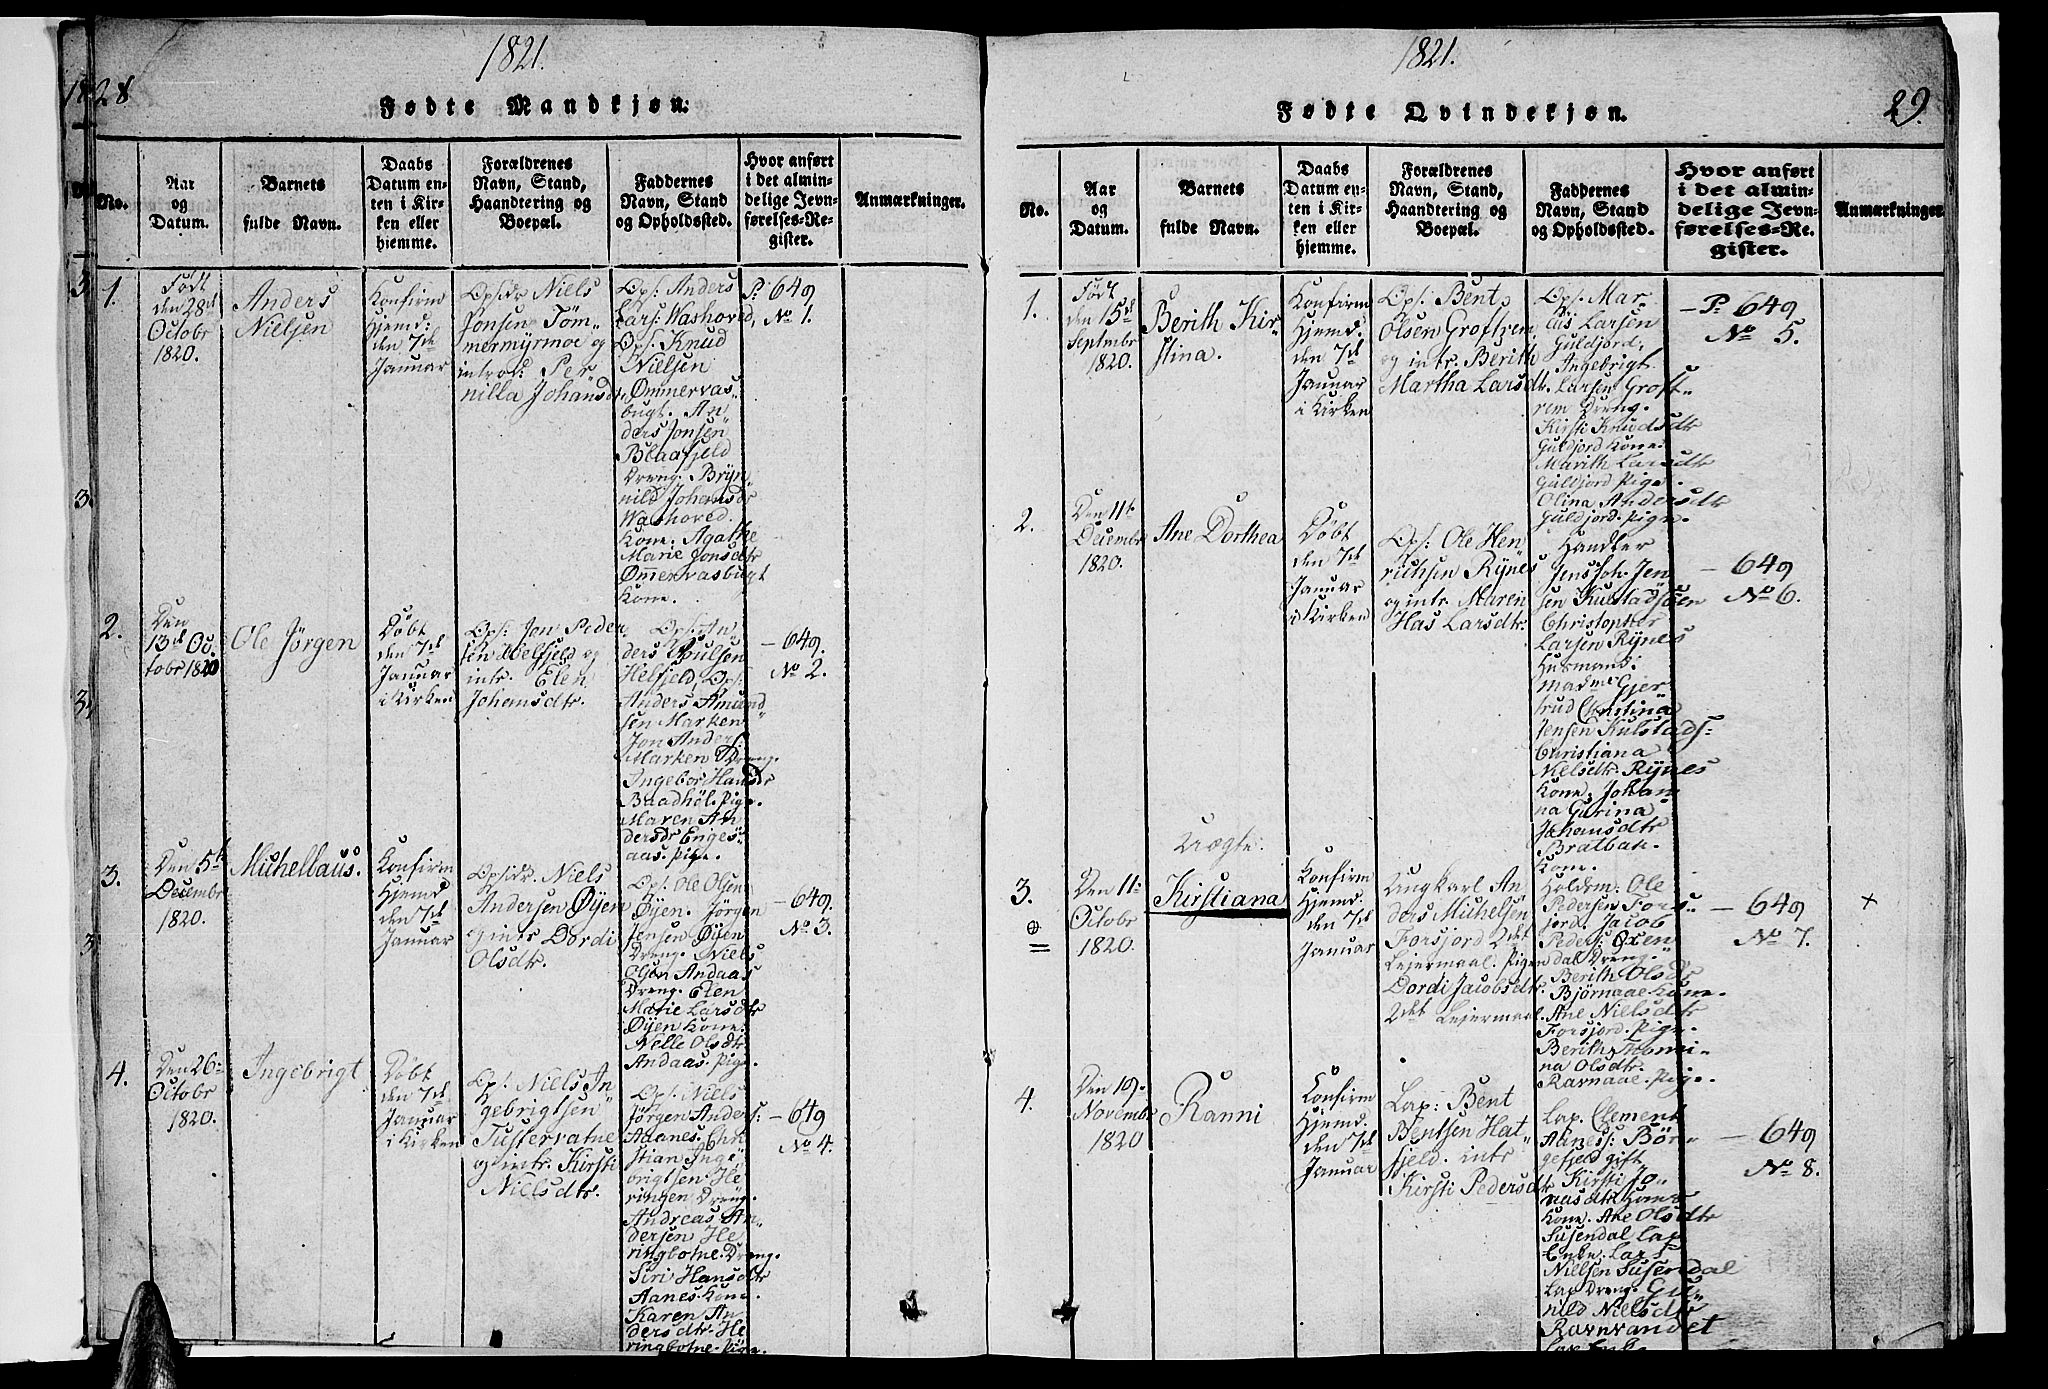 1821.
28
Fødte Mandkjøn.
No.
Aar
og
Datum.
Barnets
fulde Navn.
Daabs
Datum en-
ten i Kir-
ken eller
hjemme.
Forældrenes
Navn, Stand,
Haandtering og
Boepæl.
Faddernes
Navn, Stand
og Opholdssted.
Hvor anført
i det almin-
delige Jevn-
førelses-Re-
gister.
Anmærkninger.
1.
Født
den 28de
Octobr
1820.
Anders
Nielsen
Konfirm
Hjemd:
den 7de
Januar
Opsidr Niels
Jonsen Töm-
mermyrmoe og
introd: Per
nilla Johansdr
Ops: Anders
Lars: Washoved,
Ops: Knud
Nielsen
Ømmervas-
bugt. An
ders Jonsen
Blaafjeld
Dreng. Bryn
nild Johansdr
Washoved.
Kone. Agathe
Marie Jonsdtr
Ømmervasbugt
Kone.
P: 649
No 1.
2.
Den
13de Oc
tobr 1820
Ole Jörgen
Döbt
den 7de
Januar
i Kirken
Ops: Jon Peder
sen Helfjeld og
intr. Elen
Johansdtr.
Ops: An
ders Poulsen
Helfjeld, Ops:
Anders Amund
sen Marken
Jon Anders:
Marken Dreng.
Ingebor Hansdr
Baadhöl. Pige.
Maren An
dersdr Enges
aas. Pige.
– 649.
No 2.
3.
Den 5te
Decembr
1820.
Michellaus.
Konfirm
Hjemd
den 7de
Januar
Opsidr. Niels
Andersen Øyen
og intr Dordi
Olsdtr.
Ops: Ole Olsen
Øyen. Jörgen
Jensen Øyen
Dreng. Niels
Olsen Andaas
Dreng. Elen
Marie Larsdtr
Øyen Kone.
Nelle Olsdtr
Andaas. Pige.
– 649.
No 3.
4.
Den 26de
Octobr
1820.
Ingebrigt
Döbt
den 7de
Januar
i Kirken
Ops: Niels In
gebrigtsen
Tustervatne
og intr. Kirsti
Nielsdtr.
Ops: Niels
Jörgen Anders:
Aanes. Chri
stian Inge
brigtsen. He
ringen Dreng.
Andreas An
dersen He
ringbotne. Dreng.
Siri Hansdtr
Aanes. Kone.
Karen An
dersdtr. He
ringbotne. Pige.
– 649
No 4.
1821.
29.
Fødte Qvindekjøn.
No.
Aar
og
Datum.
Barnets
fulde Navn.
Daabs
Datum en-
ten i Kir-
ken eller
hjemme.
Forældrenes
Navn, Stand,
Haandtering og
Boepæl.
Faddernes
Navn, Stand
og Opholdssted.
Hvor anført
i det almin-
delige Jevn-
førelses-Re-
gister.
Anmærkninger
1.
Født
den 15de
Septembr
1820.
Berith Kir
stina.
Konfirm
Hjemd.
den 7de
Januar
i Kirken
Ops: Bent
Olsen Groftrem
og intr. Berith
Martha Larsdtr.
Ops: Mar-
Larsen
Guldjord,
Ingebrigt
Larsen Groft-
rem Dreng.
Kirsti Knudsdtr
Guldjord Kone.
Marith Larsdtr
Guldjord Pige.
Olina Andersdtr
Guldjord. Pige.
– P. 649
No 5.
2.
Den 11te
Decembr
1820.
Ane Dorthea
Döbt
den 7de
Januar
i Kirken
Ops: Ole Hen
richsen Rynes
og intr. Maren
Has Larsdtr.
Handler
Jens Joh. Jen
sen Kulstadsöen
Christopher
Larsen Rynes
Husmand:
Madme Gjer
trud Christina
Jensen Kulstads:
Christiana
Nielsdtr. Rynes
Kone. Johan
na Gurina
Johansdtr
Bratbak.
Kone.
– 649
No 6.
3.
Den 11:
Octobr
1820.
Uægte:
Kirstiana
Konfirm
Hjemd.
den 7de
Januar
Ungkarl An
ders Michelsen
Forsjord 2det
Leiermaal. Pigen
Dordi Jacobsdtr.
2det Leiermaal.
Holdsm: Ole
Pedersen Fors
jord. Jacob
Peders: Oxen
dal Dreng.
Berith Olsdr
Björnaae Kone.
Ane Nielsdtr
Forsjord. Pige.
Berith Romi-
na Olsdtr.
Ravnaae. Pige.
– 649
No 7.
+
4.
Den 19.
Novembr
1820
Ranni
Konfirm
Hjemd.
den 7de
Januar
Lap: Bent
Bentsen Hat
fjeld. intr
Kirsti Pedersdtr
Lap. Clement
Aanes: Bör-
gefjeld gift
Kirsti Jo-
naasdtr
Kone. Ane Olsdtr
Susendal Lap
Enke. Lars
Nielsen Susendal
Lap Dreng. Gu
nild Nielsdtr
Ravnvandet
Lap Enke
– 649
No 8.